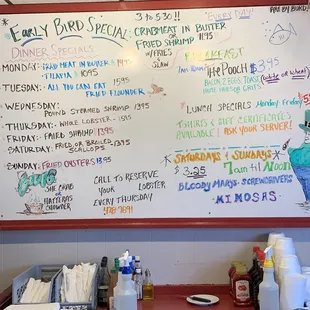 3 TO 5:30 !!
EVERY DAY
ARE BY
*EARLY BIRD SPECIAL
CRABMEAT IN BUTTER
OR
FRIED SHRIMP 11.95
W/FRIES
SLAW
DINNER SPECIALS
BREAKFAST
MONDAY: CRAB MEAT IN BUTTER
TILAPIA 10.95
"THE POOCH" $3.95
BACON 2 EGGS TOAST
(WHITE OR WHEAT)
TUESDAY: ALL YOU CAN EAT
FRIED FLOUNDER
LUNCH SPECIALS MONDAY FRIDAY
WEDNESDAY:
POUND STEAMED SHRIMP 13.95
THURSDAY: WHOLE LOBSTER
FRIDAY: FRIED SHRIMP
SATURDAY: FRIED OR BROILED
SCALLOPS
SUNDAY: FRIED OYSTERS
T SHIRTS & GIFT CERTIFICATES
AVAILABLE! ASK YOUR SERVER!
*SATURDAYS & SUNDAYS*
$3.95 7am til NOON
BLOODY MARYS. SCREWDRIVERS
MIMOSAS
SHE CRAB
OR
HATTERAS
CHOWDER
CALL TO RESERVE
YOUR LOBSTER
EVERY THURSDAY